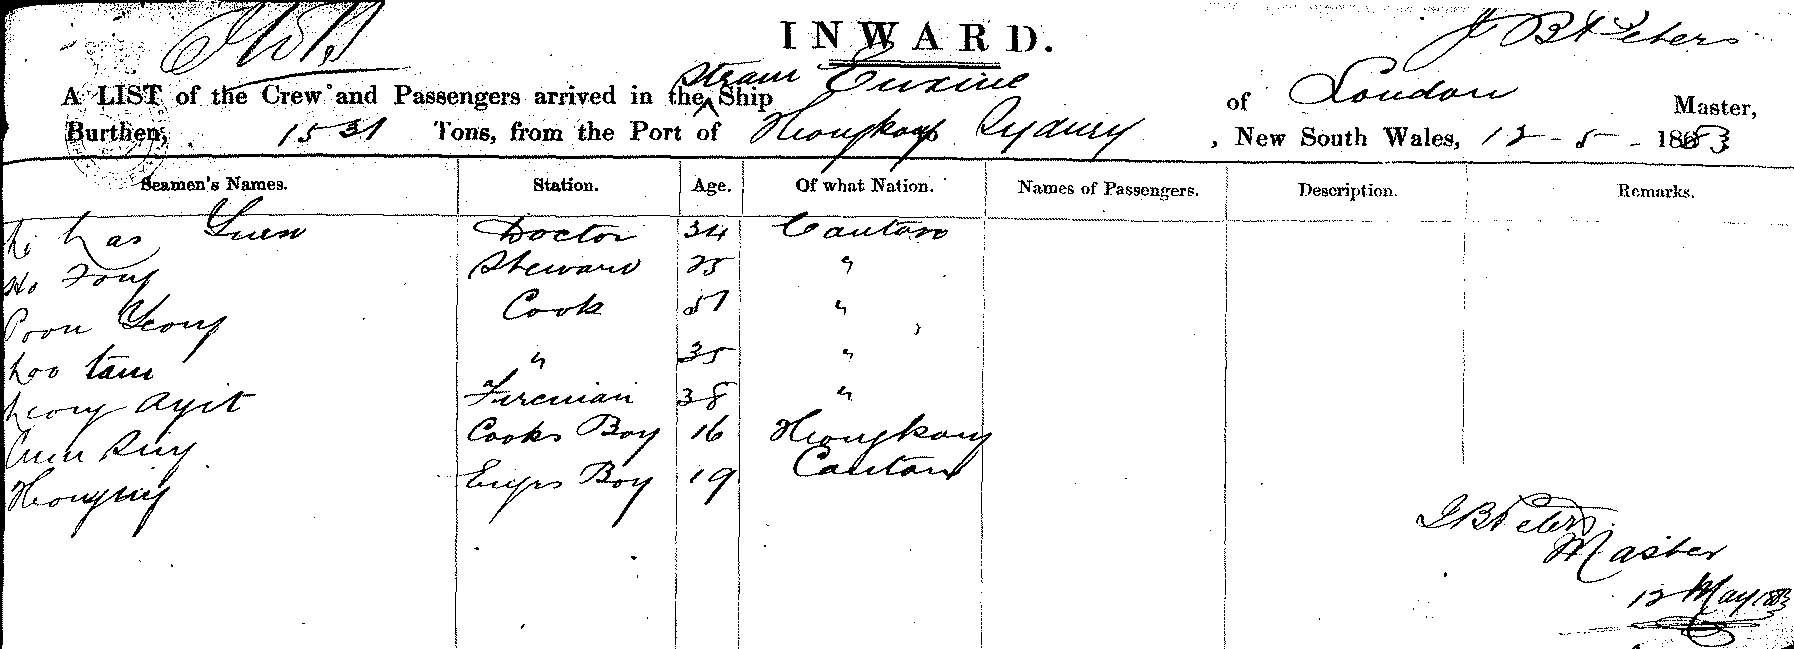 INWARD.
J B Peters
A LIST of the Crew and Passengers arrived in the Steam Ship Euxine of London Master,
Burthen, 1531 Tons, from the Port of Hongkong Sydney, New South Wales, 12-5-1883
Seamen's Names. Station. Age. Of what Nation. Names of Passengers. Description. Remarks.
Doctor 34 Canton
Ho Fong Steward 25 "
Poon Leong Cook 51 "
Loo tam " 35 "
Leong Ayit Fireman 38 "
Cooks Boy 16 Hongkong
Engrs Boy 19 Canton
J B Peters
Master
12 May 1883